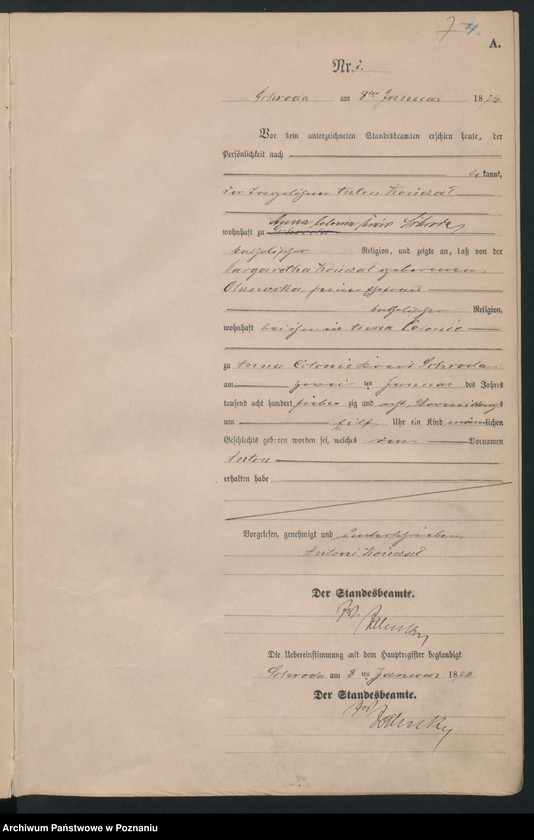 7 4.
A.
Nr. 7.
Schroda am 8ten Januar 1878
Vor dem unterzeichneten Standesbeamten erschien heute, der
Persönlichkeit nach
be kannt,
der Tagelöhner Anton
Anna Colonie Kreis Schroda
wohnhaft zu Schroda
katholischer Religion, und zeigte an, daß von der
Margaretha geborenen
seiner Ehefrau
katholischer Religion,
wohnhaft bei ihm in Anna Colonie
zu Anna Colonie Kreis Schroda
am zwei ten Januar des Jahrs
tausend acht hundert sieben zig und acht Vormittags
um elf Uhr ein Kind männlichen
Geschlechts geboren worden sei, welches den Vornamen
Anton
erhalten habe
Vorgelesen, genehmigt und unterschrieben
Antoni
Der Standesbeamte.
Die Uebereinstimmung mit dem Hauptregister beglaubigt
Schroda am 8 ten Januar 1878
Der Standesbeamte.
Archiwum Państwowe w Poznaniu